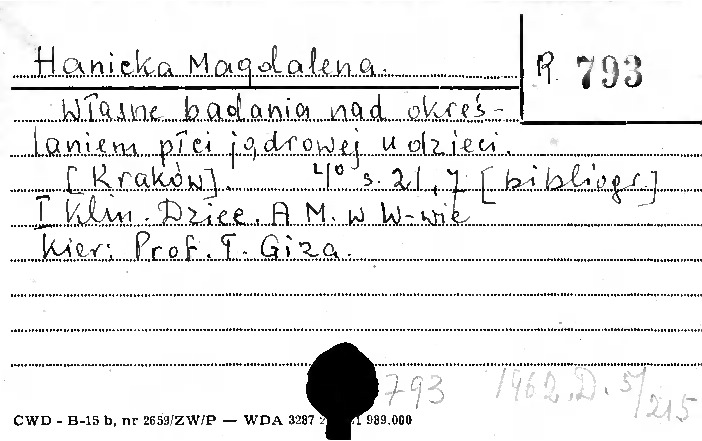 Hanicka Magdalena.
R 793
Własne badania nad okreś-
laniem płci jądrowej u dzieci.
[Kraków]. 4/0 s. 21, 7 [bibliogr]
I Klin. Dziec. A M. w W-wie
Kier: Prof. T. Giza.
793 1962.D. 5/215
CWD - B-15 b, nr 2659/ZW/P — WDA 3287 989.000